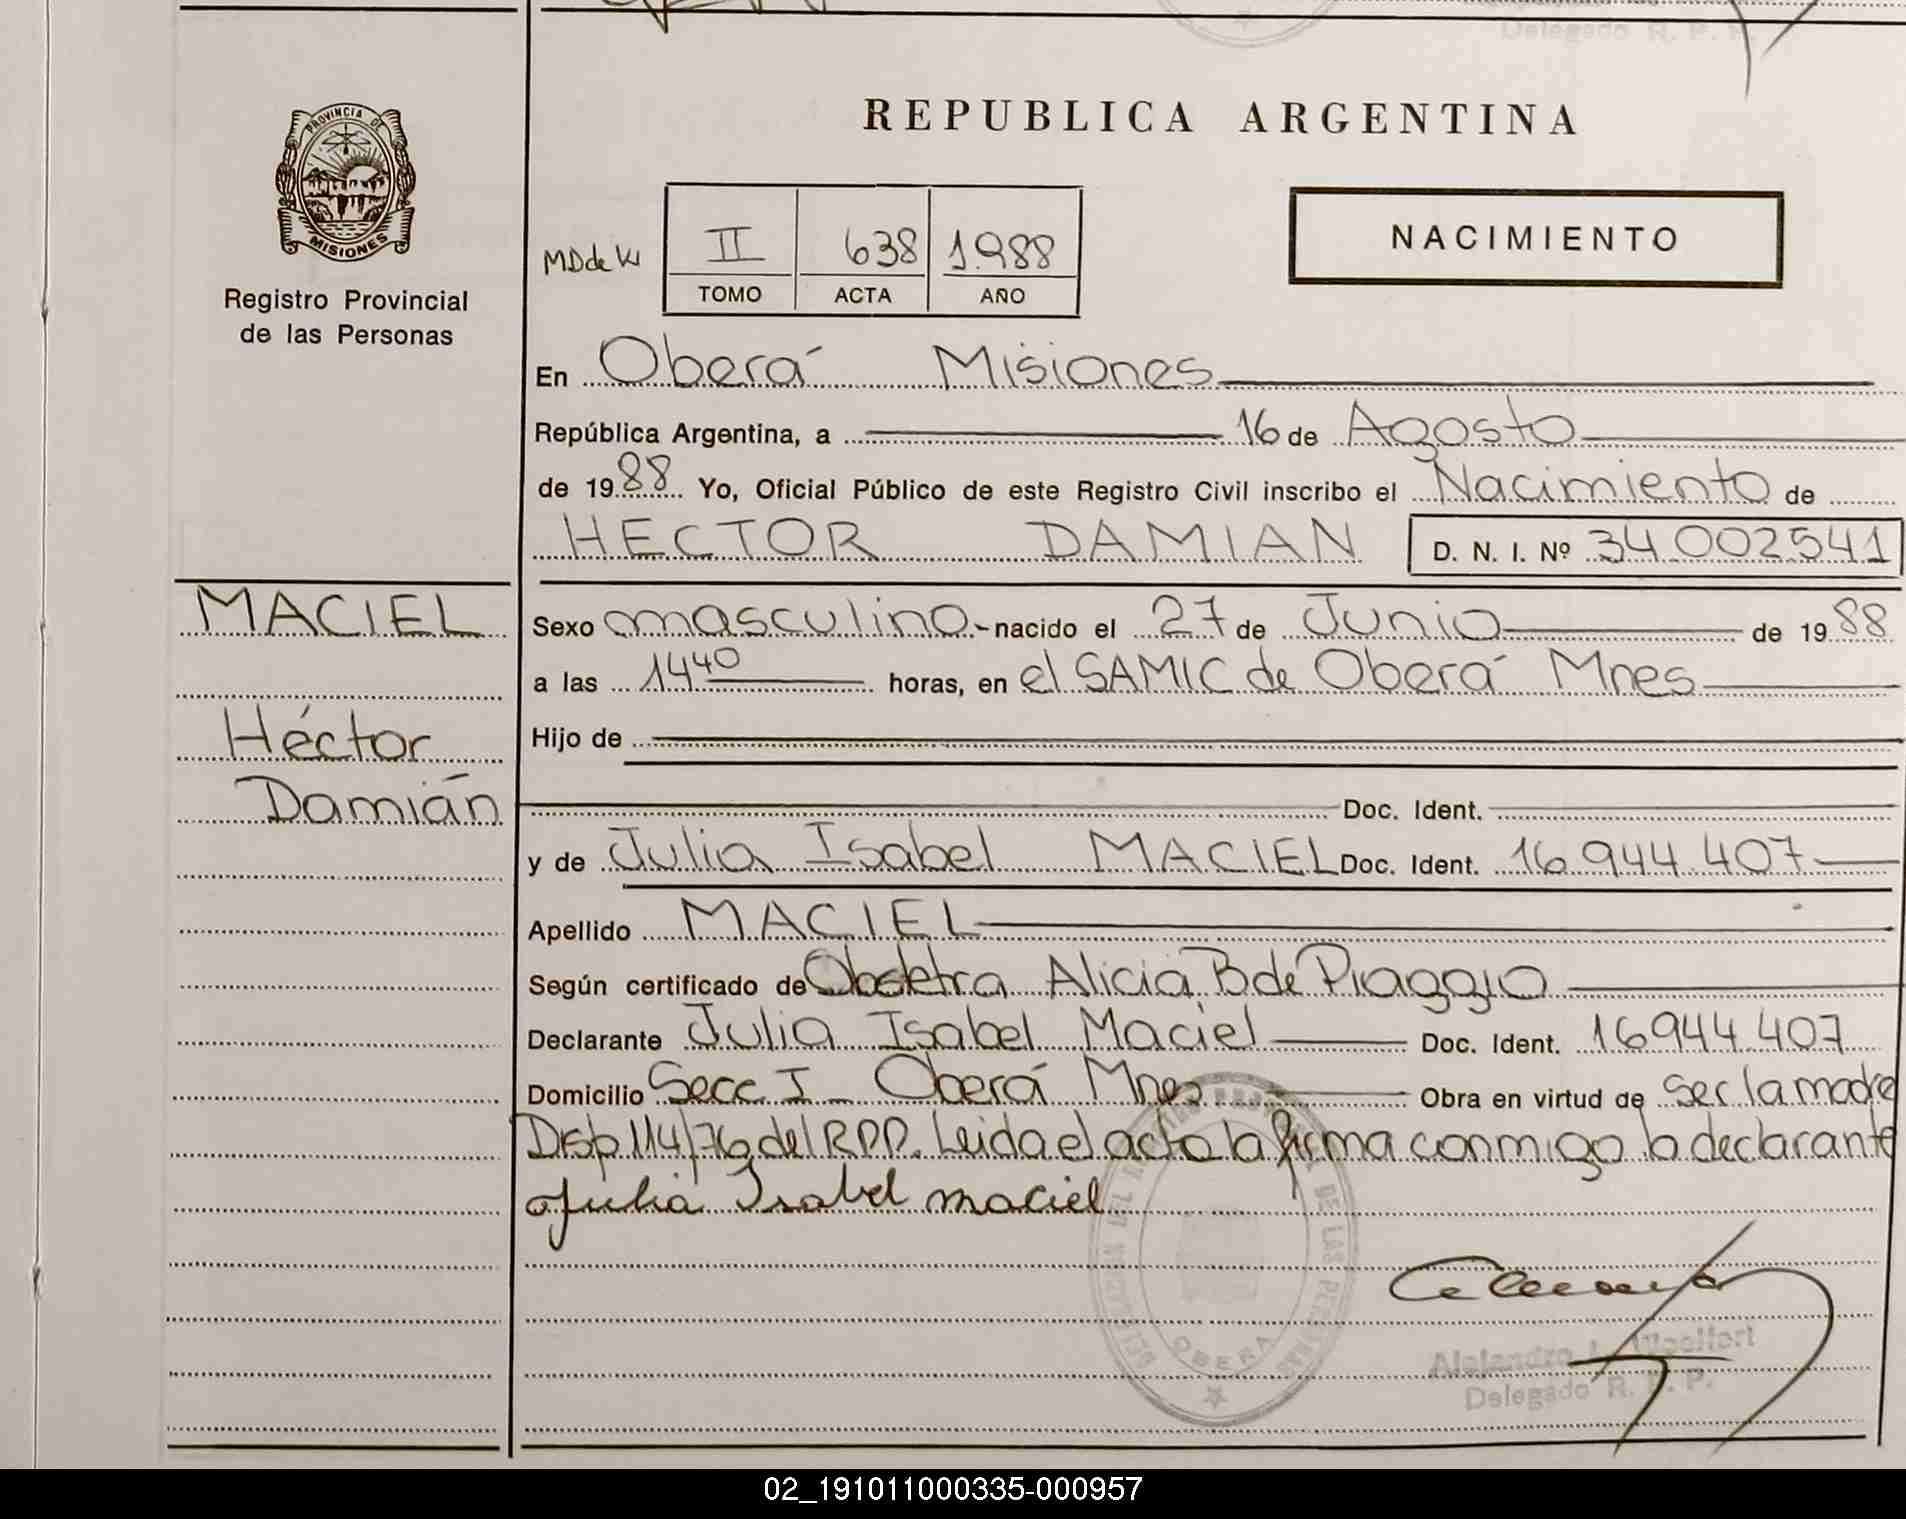 Delegado R. P. P.
PROVINCIA DE
MISIONES
Registro Provincial
de las Personas
REPUBLICA ARGENTINA
II 638 1988
TOMO ACTA AÑO
NACIMIENTO
En Oberá Misiones
República Argentina, a 16 de Agosto
de 1988 Yo, Oficial Público de este Registro Civil inscribo el Nacimiento de
HECTOR DAMIAN D. N. I. Nº 34.002541
MACIEL
Héctor
Damián
Sexo masculino - nacido el 27 de Junio de 1988
a las 14 40 horas, en el SAMIC de Oberá Mnes
Hijo de
Doc. Ident.
y de Julia Isabel MACIEL Doc. Ident. 16.944.407
Apellido MACIEL
Según certificado de Obstetra Alicia B de Piaggio
Declarante Julia Isabel Maciel Doc. Ident. 16944.407
Domicilio Secc I - Oberá Mnes Obra en virtud de ser la madre
Disp 114/76 del RPP. Leida el acta la firma conmigo la declarante
Julia Isabel maciel
OBERA
Alejandro
Delegado R. P. P.
02_191011000335-000957